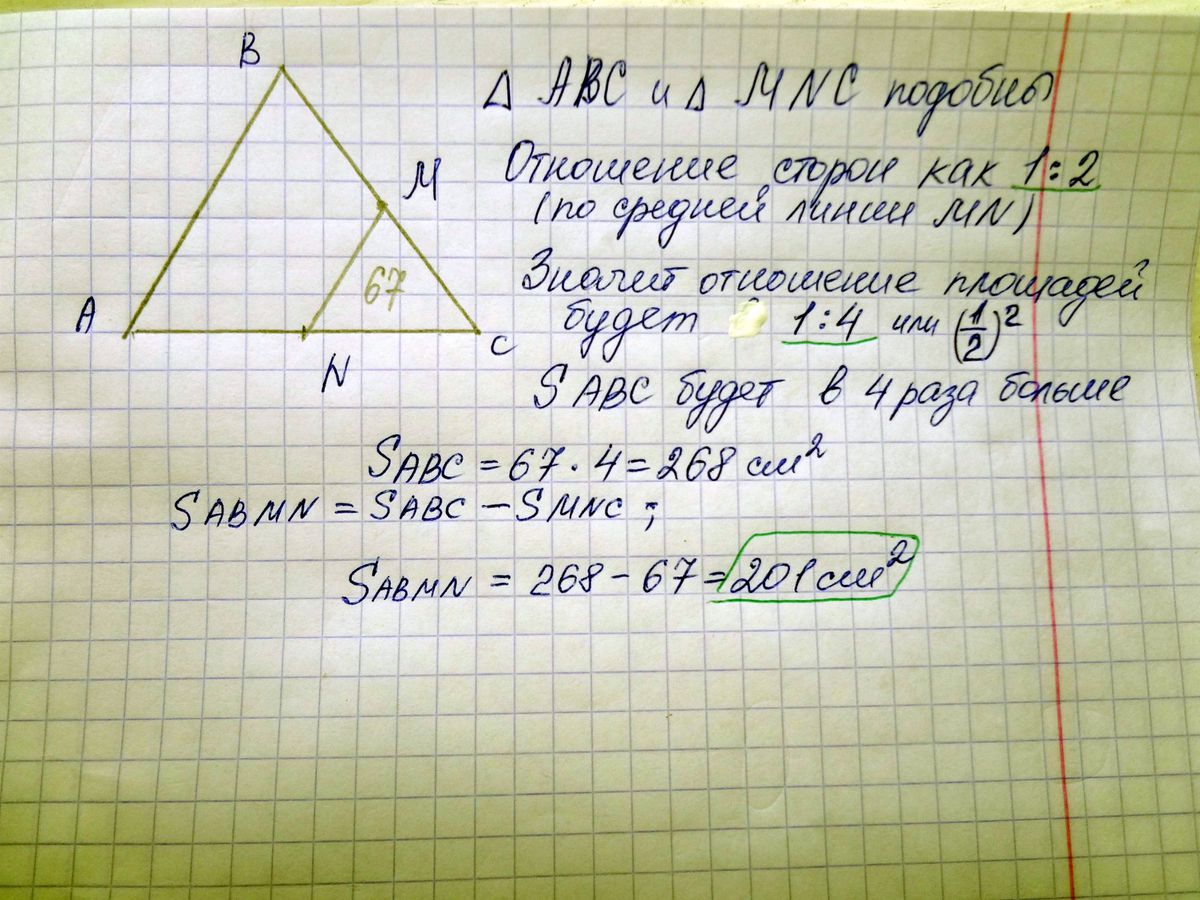 B
M
67
A
N
C
Δ ABC и Δ MNC подобны
Отношение сторон как 1:2
(по средней линии MN)
Значит отношение площадей
будет 1:4 или (1/2)²
S ABC будет в 4 раза больше
SABC = 67 · 4 = 268 см²
SABMN = SABC – SMNC ;
SABMN = 268 – 67 = 201 см²